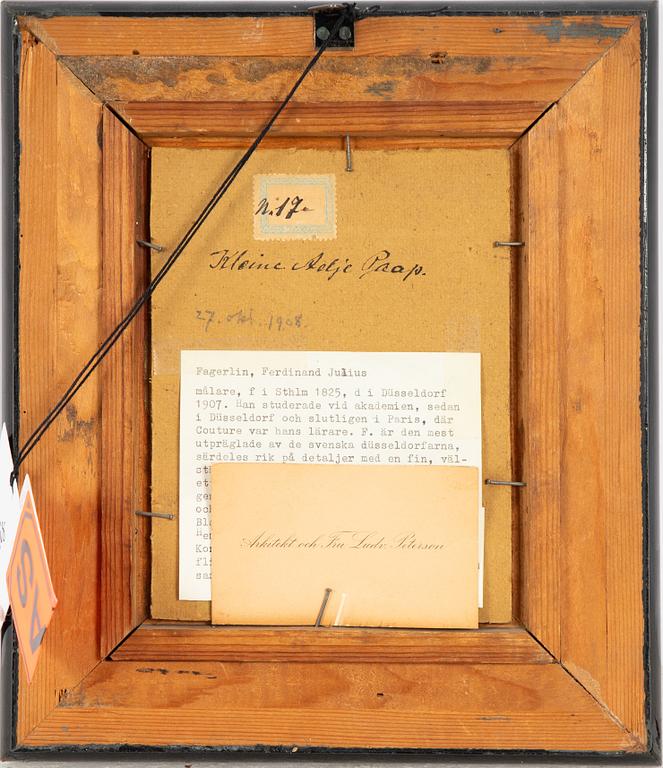 N. 17.
Kleine Aelje Paap.
27. okt. 1908.
Fagerlin, Ferdinand Julius
målare, f i Sthlm 1825, d i Düsseldorf
1907. Han studerade vid akademien, sedan
i Düsseldorf och slutligen i Paris, där
Couture var hans lärare. F. är den mest
utpräglade av de svenska düsseldorfarna,
särdeles rik på detaljer med en fin, väl-
Arkitekt och Fru Ludv. Peterson